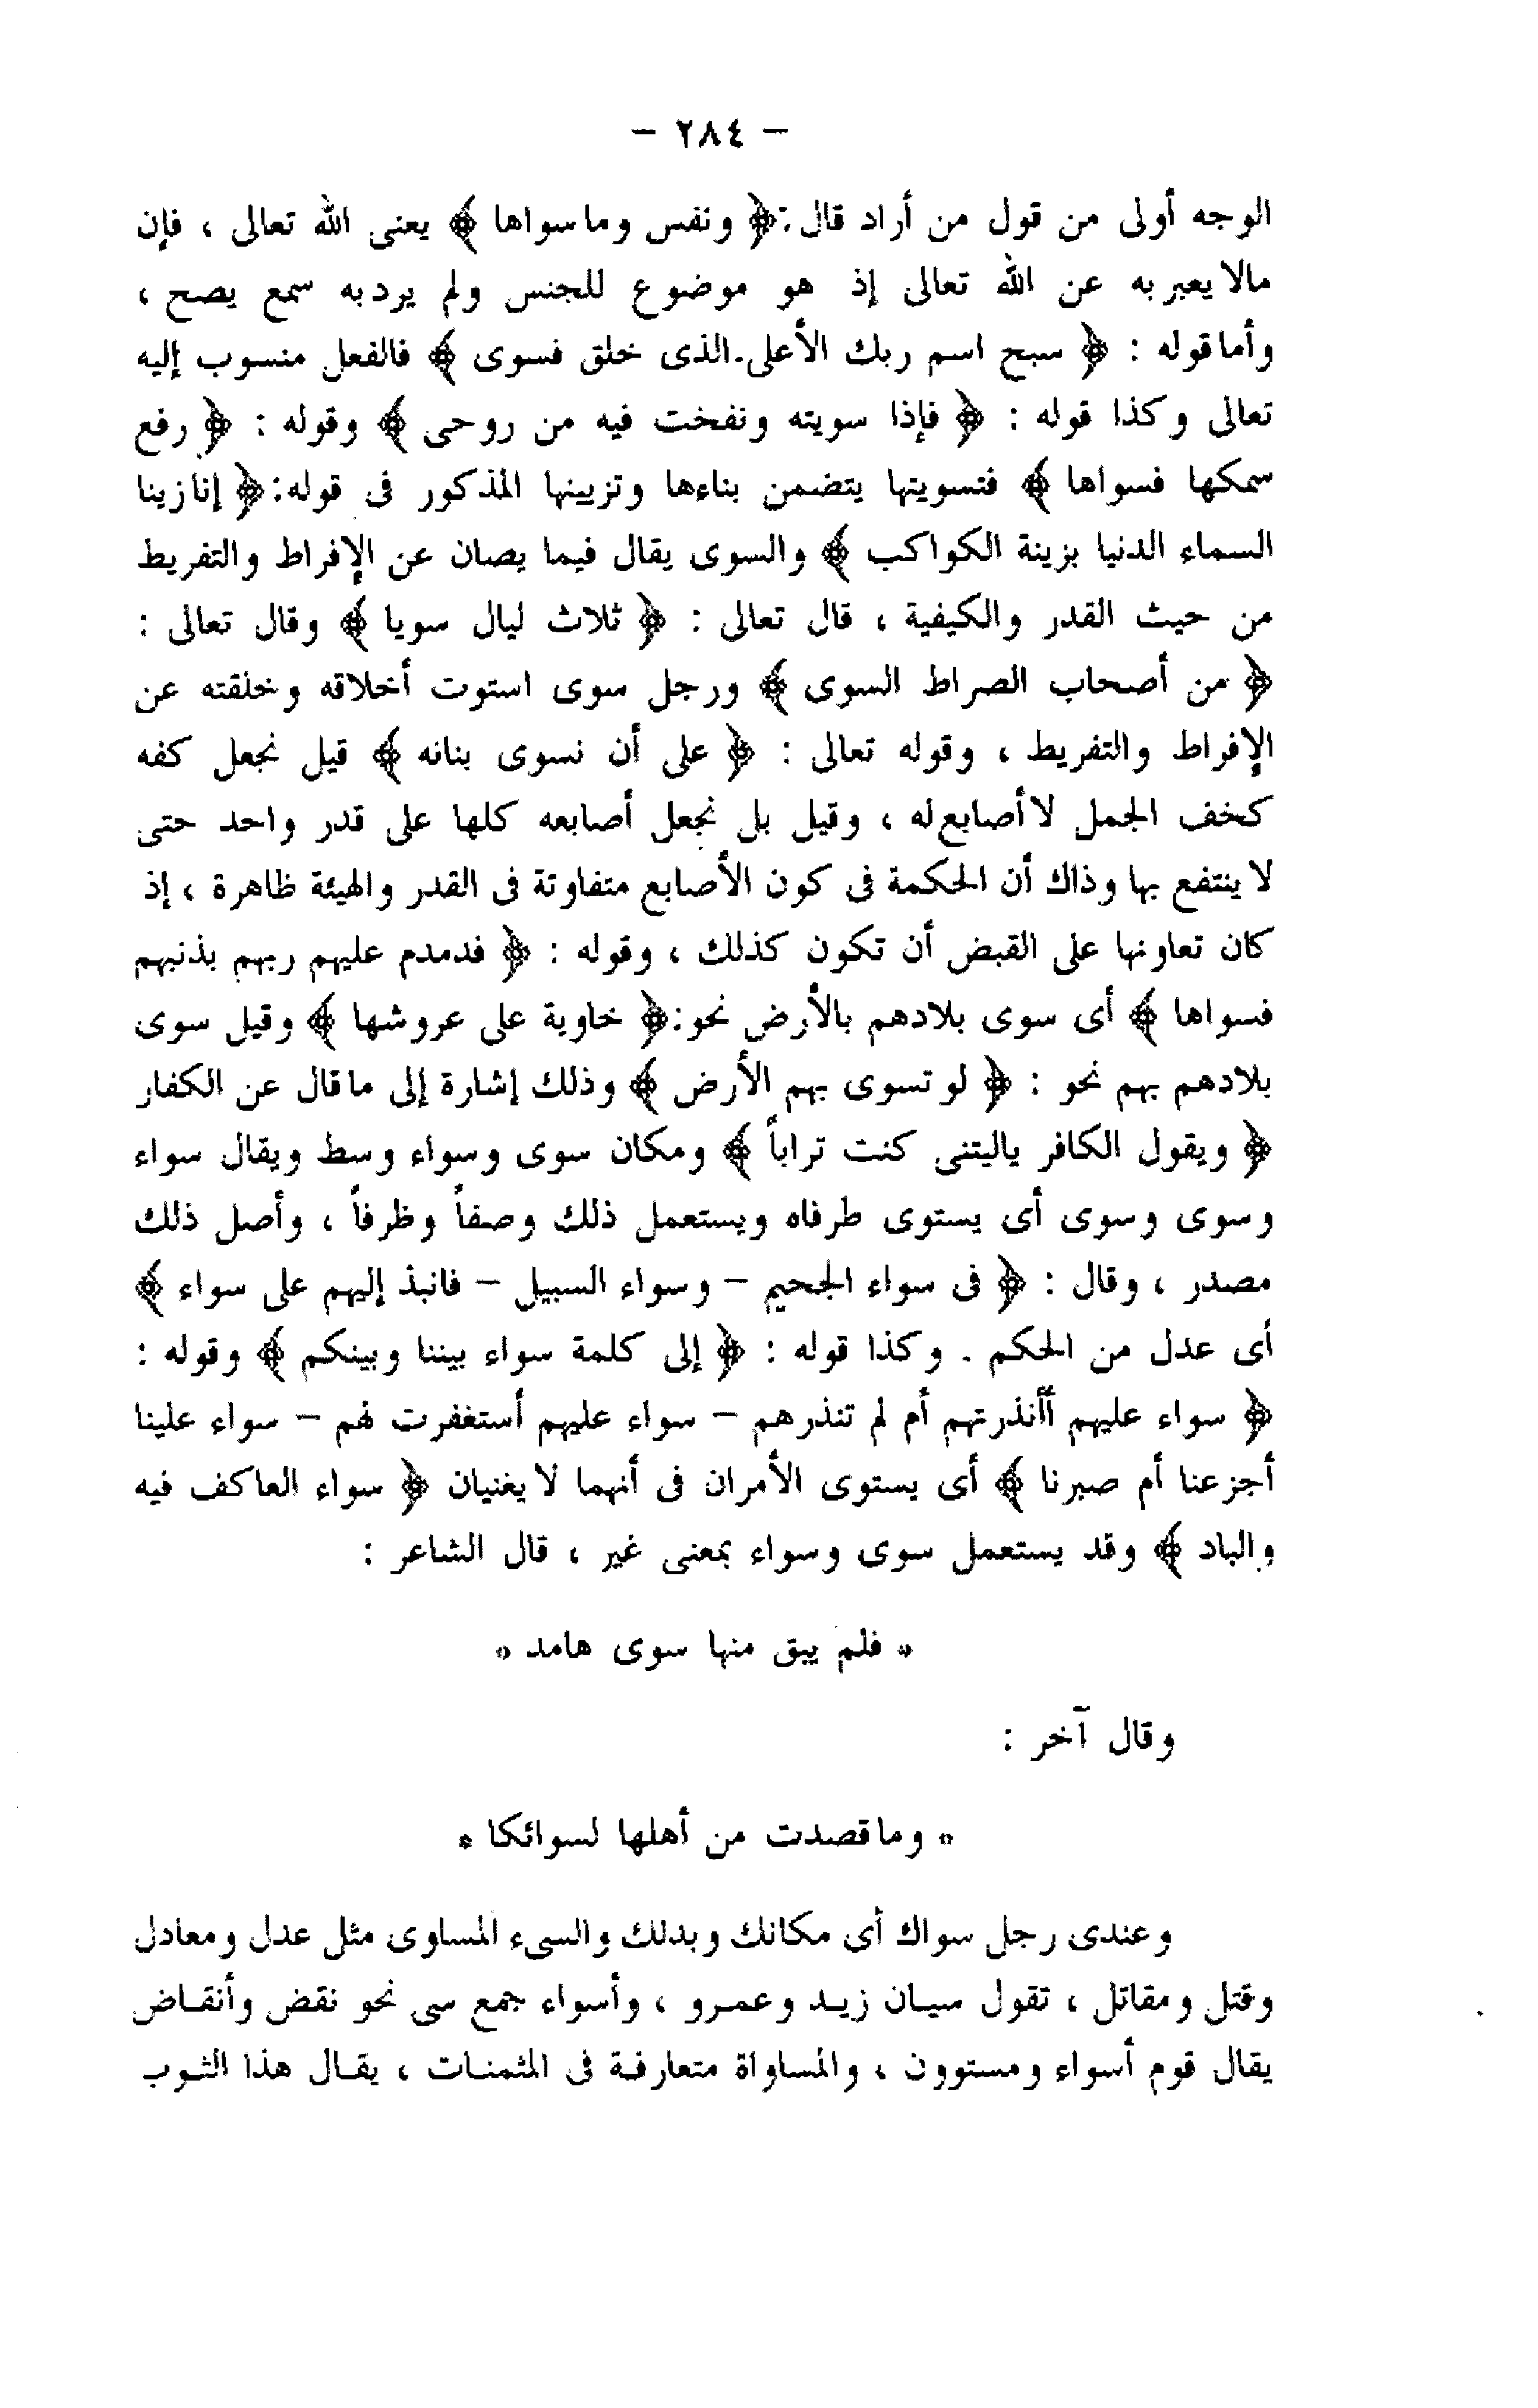 - ٢٨٤ -
الوجه أولى من قول من أراد قال : ﴿ ونفس وما سواها ﴾ يعنى الله تعالى ، فإن
مالا يعبر به عن الله تعالى إذ هو موضوع للجنس ولم يرد به سمع يصح ،
وأما قوله : ﴿ سبح اسم ربك الأعلى . الذى خلق فسوى ﴾ فالفعل منسوب إليه
تعالى وكذا قوله : ﴿ فإذا سويته ونفخت فيه من روحى ﴾ وقوله : ﴿ رفع
سمكها فسواها ﴾ فتسويتها يتضمن بناءها وتزيينها المذكور فى قوله : ﴿ إنا زينا
السماء الدنيا بزينة الكواكب ﴾ والسوى يقال فيما يصان عن الإفراط والتفريط
من حيث القدر والكيفية ، قال تعالى : ﴿ ثلاث ليال سويا ﴾ وقال تعالى :
﴿ من أصحاب الصراط السوى ﴾ ورجل سوى استوت أخلاقه وخلقته عن
الإفراط والتفريط ، وقوله تعالى : ﴿ على أن نسوى بنانه ﴾ قيل نجعل كفه
كخف الجمل لا أصابع له ، وقيل بل نجعل أصابعه كلها على قدر واحد حتى
لا ينتفع بها وذاك أن الحكمة فى كون الأصابع متفاوتة فى القدر والهيئة ظاهرة ، إذ
كان تعاونها على القبض أن تكون كذلك ، وقوله : ﴿ فدمدم عليهم ربهم بذنبهم
فسواها ﴾ أى سوى بلادهم بالأرض نحو : ﴿ خاوية على عروشها ﴾ وقيل سوى
بلادهم بهم نحو : ﴿ لو تسوى بهم الأرض ﴾ وذلك إشارة إلى ما قال عن الكفار
﴿ ويقول الكافر ياليتنى كنت تراباً ﴾ ومكان سوى وسواء وسط ويقال سواء
وسوى وسوى أى يستوى طرفاه ويستعمل ذلك وصفاً وظرفاً ، وأصل ذلك
مصدر ، وقال : ﴿ فى سواء الجحيم - وسواء السبيل - فانبذ إليهم على سواء ﴾
أى عدل من الحكم . وكذا قوله : ﴿ إلى كلمة سواء بيننا وبينكم ﴾ وقوله :
﴿ سواء عليهم أأنذرتهم أم لم تنذرهم - سواء عليهم أستغفرت لهم - سواء علينا
أجزعنا أم صبرنا ﴾ أى يستوى الأمران فى أنهما لا يغنيان ﴿ سواء العاكف فيه
والباد ﴾ وقد يستعمل سوى وسواء بمعنى غير ، قال الشاعر :
* فلم يبق منها سوى هامد *
وقال آخر :
* وما قصدت من أهلها لسوائكا *
وعندى رجل سواك أى مكانك وبدلك والسىء المساوى مثل عدل ومعادل
وقتل ومقاتل ، تقول سيان زيد وعمرو ، وأسواء جمع سى نحو نقض وأنقاض
يقال قوم أسواء ومستوون ، والمساواة متعارفة فى المثمنات ، يقال هذا الثوب